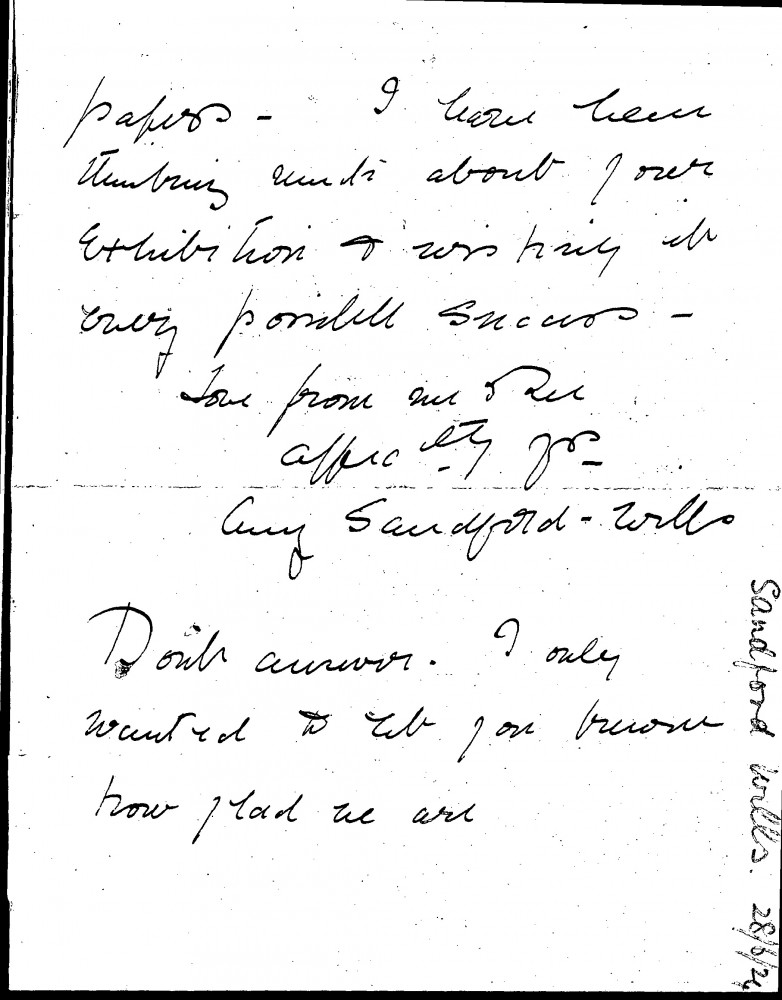 papers - I have been
thinking much about your
Exhibition & wishing it
every possible success -
Love from me &
affec^tly yrs -
Amy Sandford-Wills
Don't answer. I only
wanted to let you know
how glad we are
Sandford Wills. 28/6/24